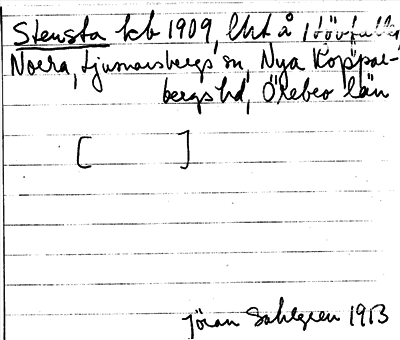 Stensta kb 1909, lht å
Norra, Ljusnarsbergs sn, Nya Koppar-
bergs hd, Örebro län
[ ]
Jöran Sahlgren 1913